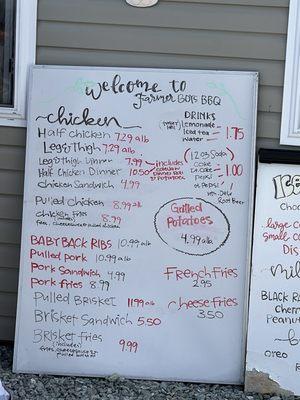 welcome to
Farmer Boys BBQ
chicken
Half chicken 7.29 a lb
Leg&Thigh 7.29 a lb
Leg&Thigh Dinner 7.99
Half Chicken Dinner 10.50
includes
Dinner Roll
& Potatoes
chicken Sandwich 4.99
Pulled chicken 8.99 a lb
chicken fries 8.99
BABY BACK RIBS 10.99 a lb
Pulled pork 10.99 a lb
Pork Sandwich 4.99
Pork fries 8.99
Pulled Brisket 11.99 a lb
Brisket Sandwich 5.50
Brisket fries 9.99
(includes)
DRINKS
Lemonade
Iced tea
water
1.75
(12 oz) Soda
Coke
Dt. Coke
Pepsi
1.00
Root Beer
Grilled
Potatoes
4.99 a lb
French fries
2.95
Cheese fries
3.50
large c
Small c
Dis
Mil
BLACK R
Cherr
Peanut
oreo